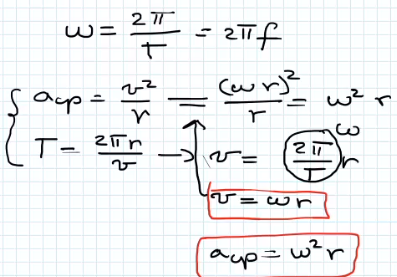 ω = 2π/T = 2πf
a_cp = v²/r = (ωr)²/r = ω² r
T = 2πr/v → v = (2π/T) r ω
v = ωr
a_cp = ω² r